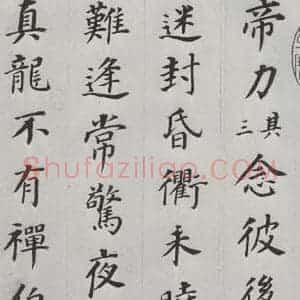 帝力其三念彼後
迷封昏衢未曉
難逢常驚夜
真龍不有禪
Shufaziliao.com